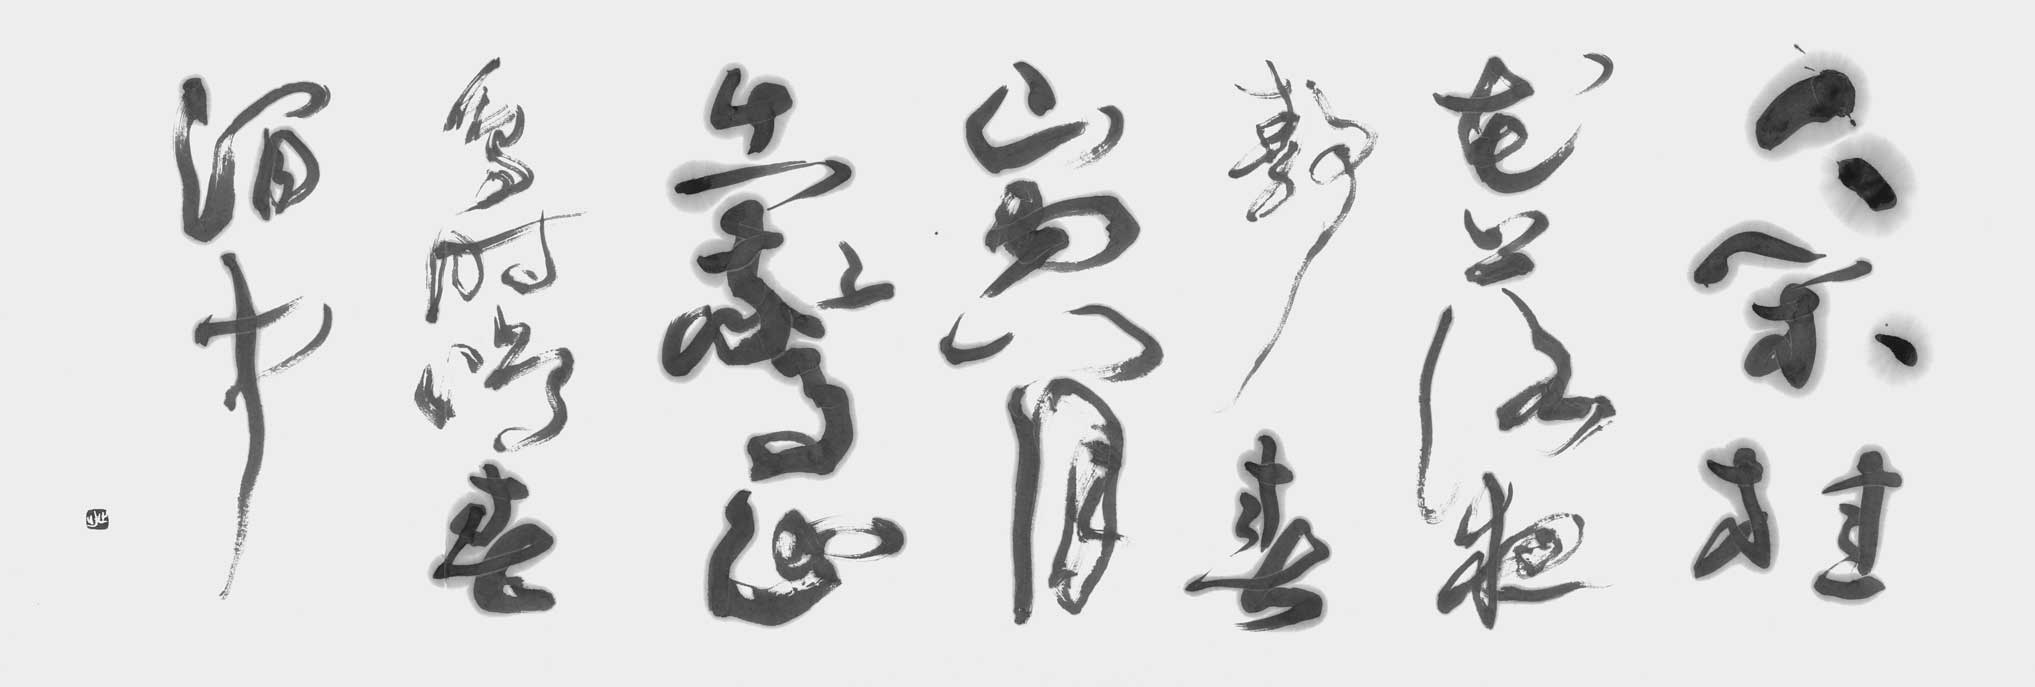 人閑桂
花落夜
靜春
山空月
出驚山
鳥時鳴春
澗中